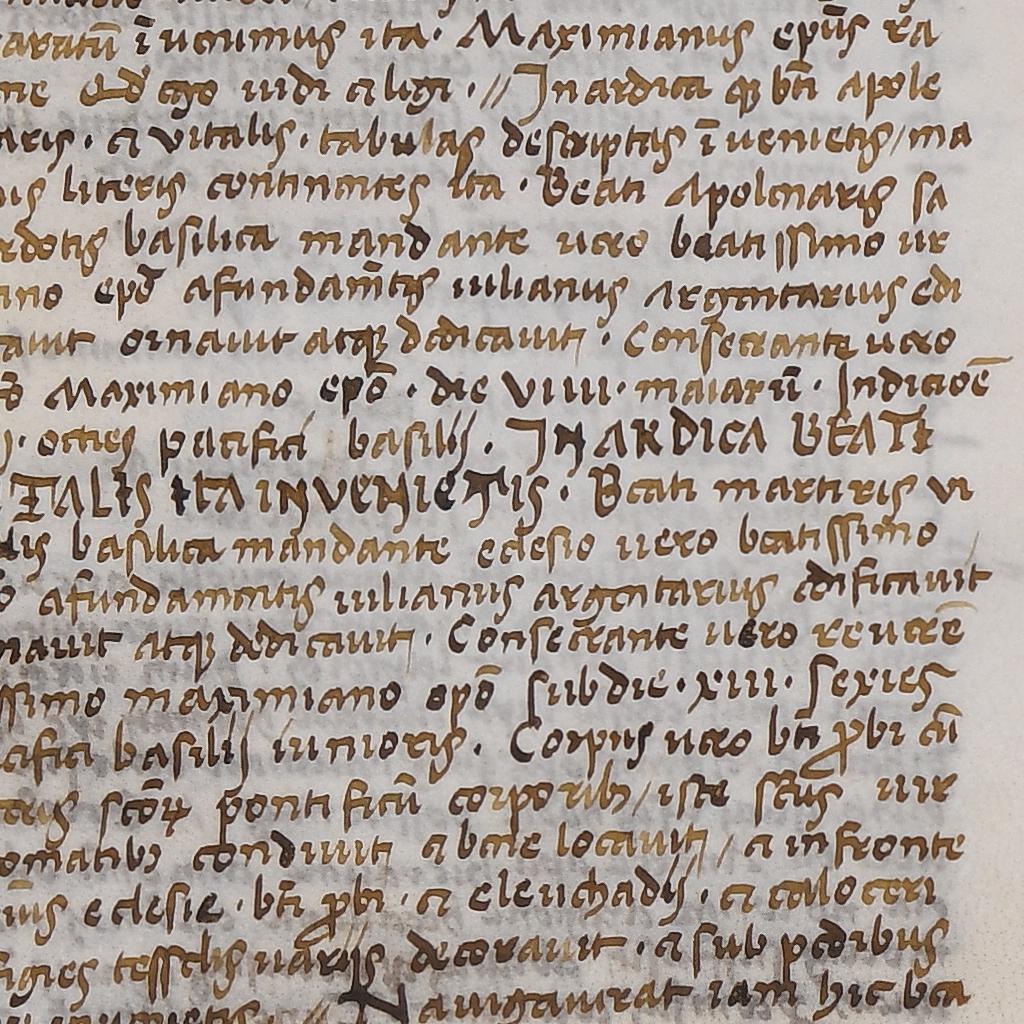 aratū īuenimus ita· Maximianus ep̄us ra
ne Ed ego uidi et legi · // In ardica q̨ bt̄i apole
aris · et vitalis · tabulas descriptas īuenietis / ma
is literis continentes ita · Beati Apolenaris sa
rdotis basilica mandante uero beatissimo ur
ino ep̄o afundam̄tis iulianus Argentarius edi
cauit ornauit atq̨ dedicauit · Consecrante uero
o Maximiano ep̄o · die viiii · maiarū · Indictioē
· octies pacifici basilij · IN ARDICA BEATI
TALIS ITA INVENIETIS · Beati martiris vi
lis basilica mandante eclesio uero beatissimo
o afundamentis iulianus argentarius edificauit
nauit atq̨ dedicauit · Consecrante uero reuerē
ssimo maximiano ep̄o sub die · xiii · sexies
acifici basilij iunioris · Corpus uero bt̄i p̱bi cū
teris sctōꝝ pontificū corporibꝫ / iste sctūs uir
omatibꝫ condiuit et bene locauit / et in fronte
ius eclesie · bt̄i p̱bi · et eleuchadij · et caloceri
figies tessellis uarijs decorauit · et sub pedibus
inuenietis · // Nauigauerat iam hic bea